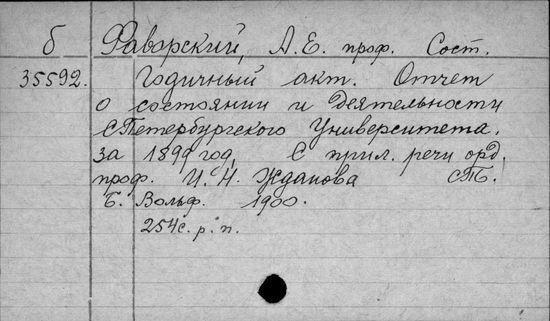 б Фаворский, А.Е. проф. Сост.
35592. Годичный акт. Отчет
о состоянии и деятельности
С Петербургского Университета.
за 1899 год. С прил. речи орд.
проф. И. Н. Жданова СП.
Б. Вольф. 1900.
254с. р. п.